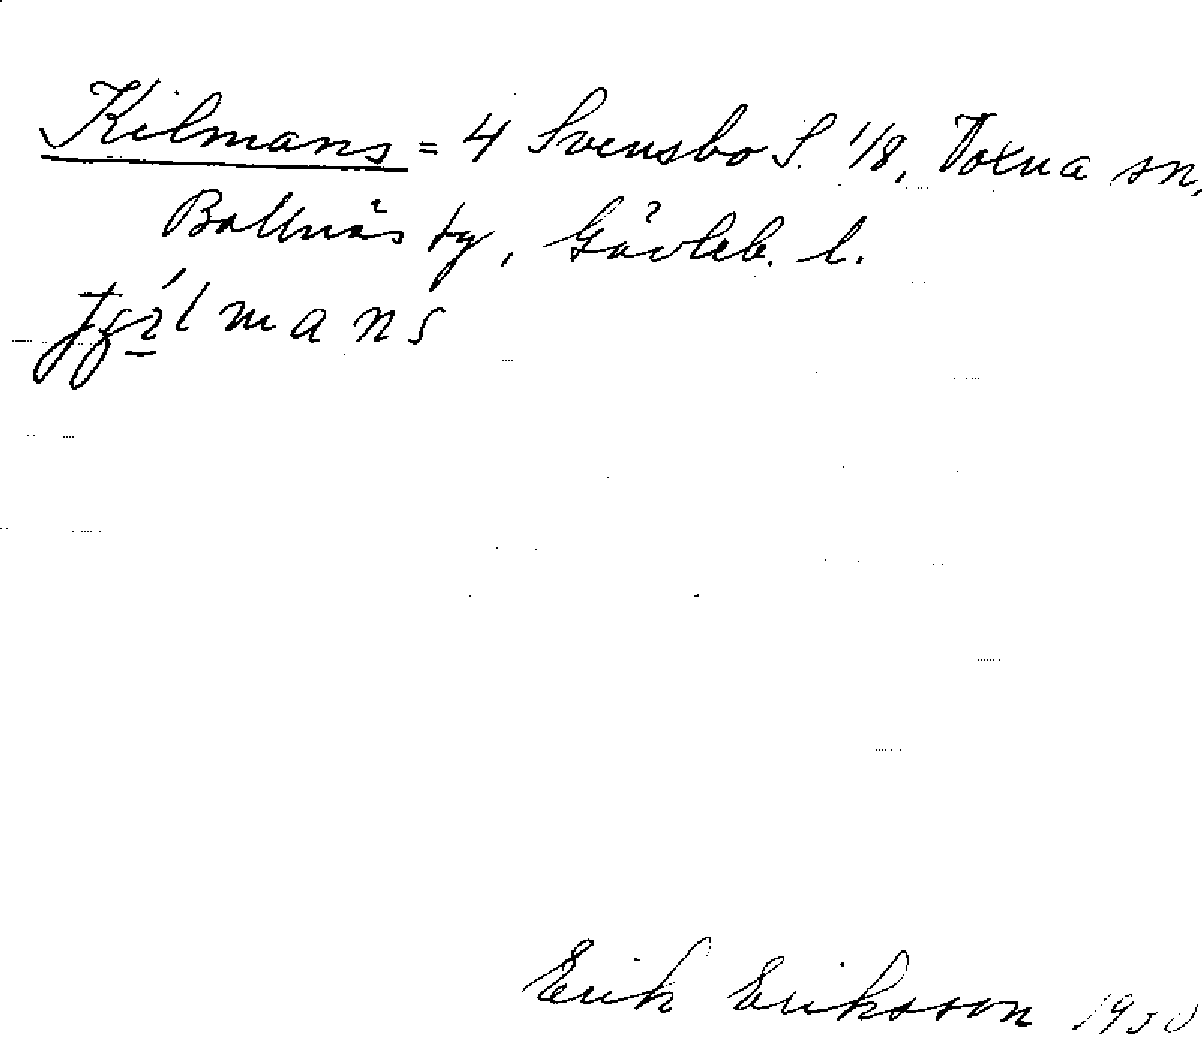 Kilmans = 4 Svensbo S. 1/8, Voxna sn,
Bollnäs tg, Gävleb. l.
Erik Eriksson 1930